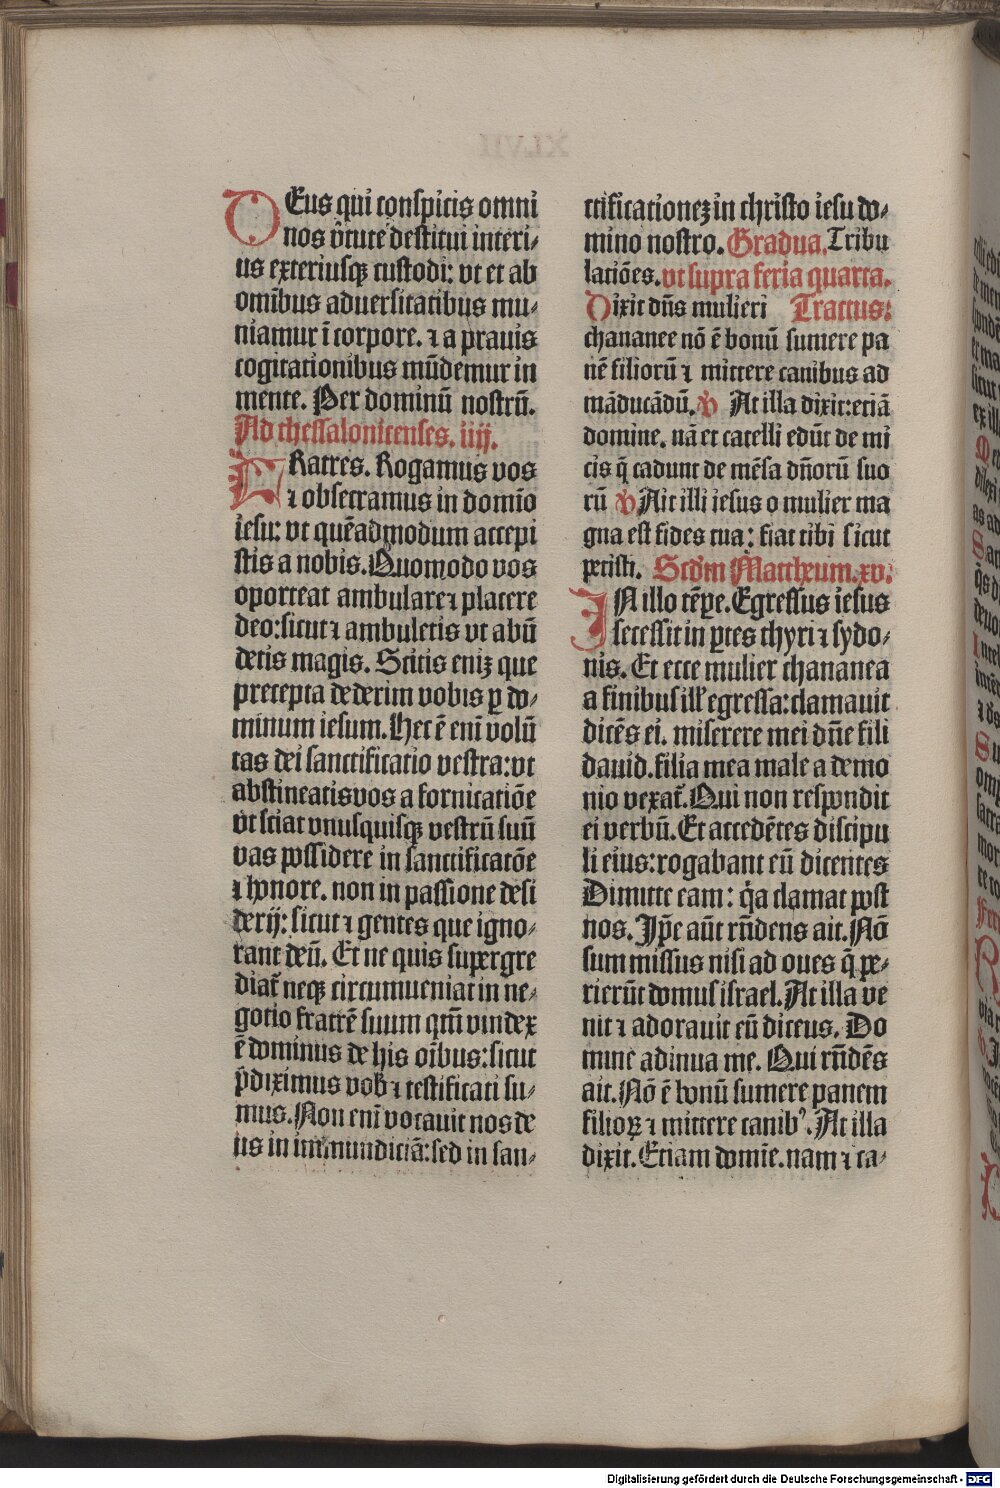 DEus qui conspicis omni
nos v̄tute destitui interi⸗
us exteriusqꝫ custodi: vt et ab
omībus aduersitatibus mu⸗
niamur ī corpore. ⁊ a prauis
cogitationibus mūdemur in
mente. Per dominū nostrū.
Ad thessalonicenses. iiij.
FRatres. Rogamus vos
⁊ obsecramus in domīo
iesu: vt quēadmodum accepi
stis a nobis. Quomodo vos
oporteat ambulare⁊ placere
deo: sicut ⁊ ambuletis vt abū
detis magis. Scitis eniꝫ que
precepta dederim vobis ꝑ do⸗
minum iesum. Hec ē enī volū
tas dei sanctificatio vestra: vt
abstineatisvos a fornicatiōe
vt sciat vnusquisqꝫ vestrū suū
vas possidere in sanctificatōe
⁊ honore. non in passione desi
derij: sicut ⁊ gentes que igno⸗
rant deū. Et ne quis supergre
diat̄ neqꝫ circumueniat in ne⸗
gotio fratrē suum qm̄ vindex
ē dominus de his oībus: sicut
p̄diximus vob̄ ⁊ testificati su⸗
mus. Non enī vocauit nos de
us in immundiciā: sed in san⸗
ctificationeꝫ in christo iesu do⸗
mino nostro. Gradua. Tribu
latiōes. vt supra feria quarta.
Dixit dn̄s mulieri Tractus:
chananee nō ē bonū sumere pa
nē filiorū ⁊ mittere canibus ad
māducādū. v At illa dixit: etiā
domine. nā et catelli edūt de mi
cis q̄ cadunt de mēsa dn̄orū suo
rū v Ait illi iesus o mulier ma
gna est fides tua: fiat tibi sicut
petisti. Scd̄m Mattheum. xv.
IN illo tēꝑe. Egressus iesus
secessit in ꝑtes thyri ⁊ sydo⸗
nis. Et ecce mulier chananea
a finibus ill' egressa: clamauit
dicēs ei. miserere mei dn̄e fili
dauid. filia mea male a demo
nio vexat̄. Qui non respondit
ei verbū. Et accedētes discipu
li eius: rogabant eū dicentes
Dimitte eam: q̄a clamat post
nos. Ip̄e aūt rn̄dens ait. Nō
sum missus nisi ad oues q̄ pe⸗
rierūt domus israel. At illa ve
nit ⁊ adorauit eū diceus. Do
mine adinua me. Qui rn̄dēs
ait. Nō ē bonū sumere panem
filioꝝ ⁊ mittere canibꝰ. At illa
dixit. Etiam domīe. nam ⁊ ca⸗
Digitalisierung gefördert durch die Deutsche Forschungsgemeinschaft - DFG